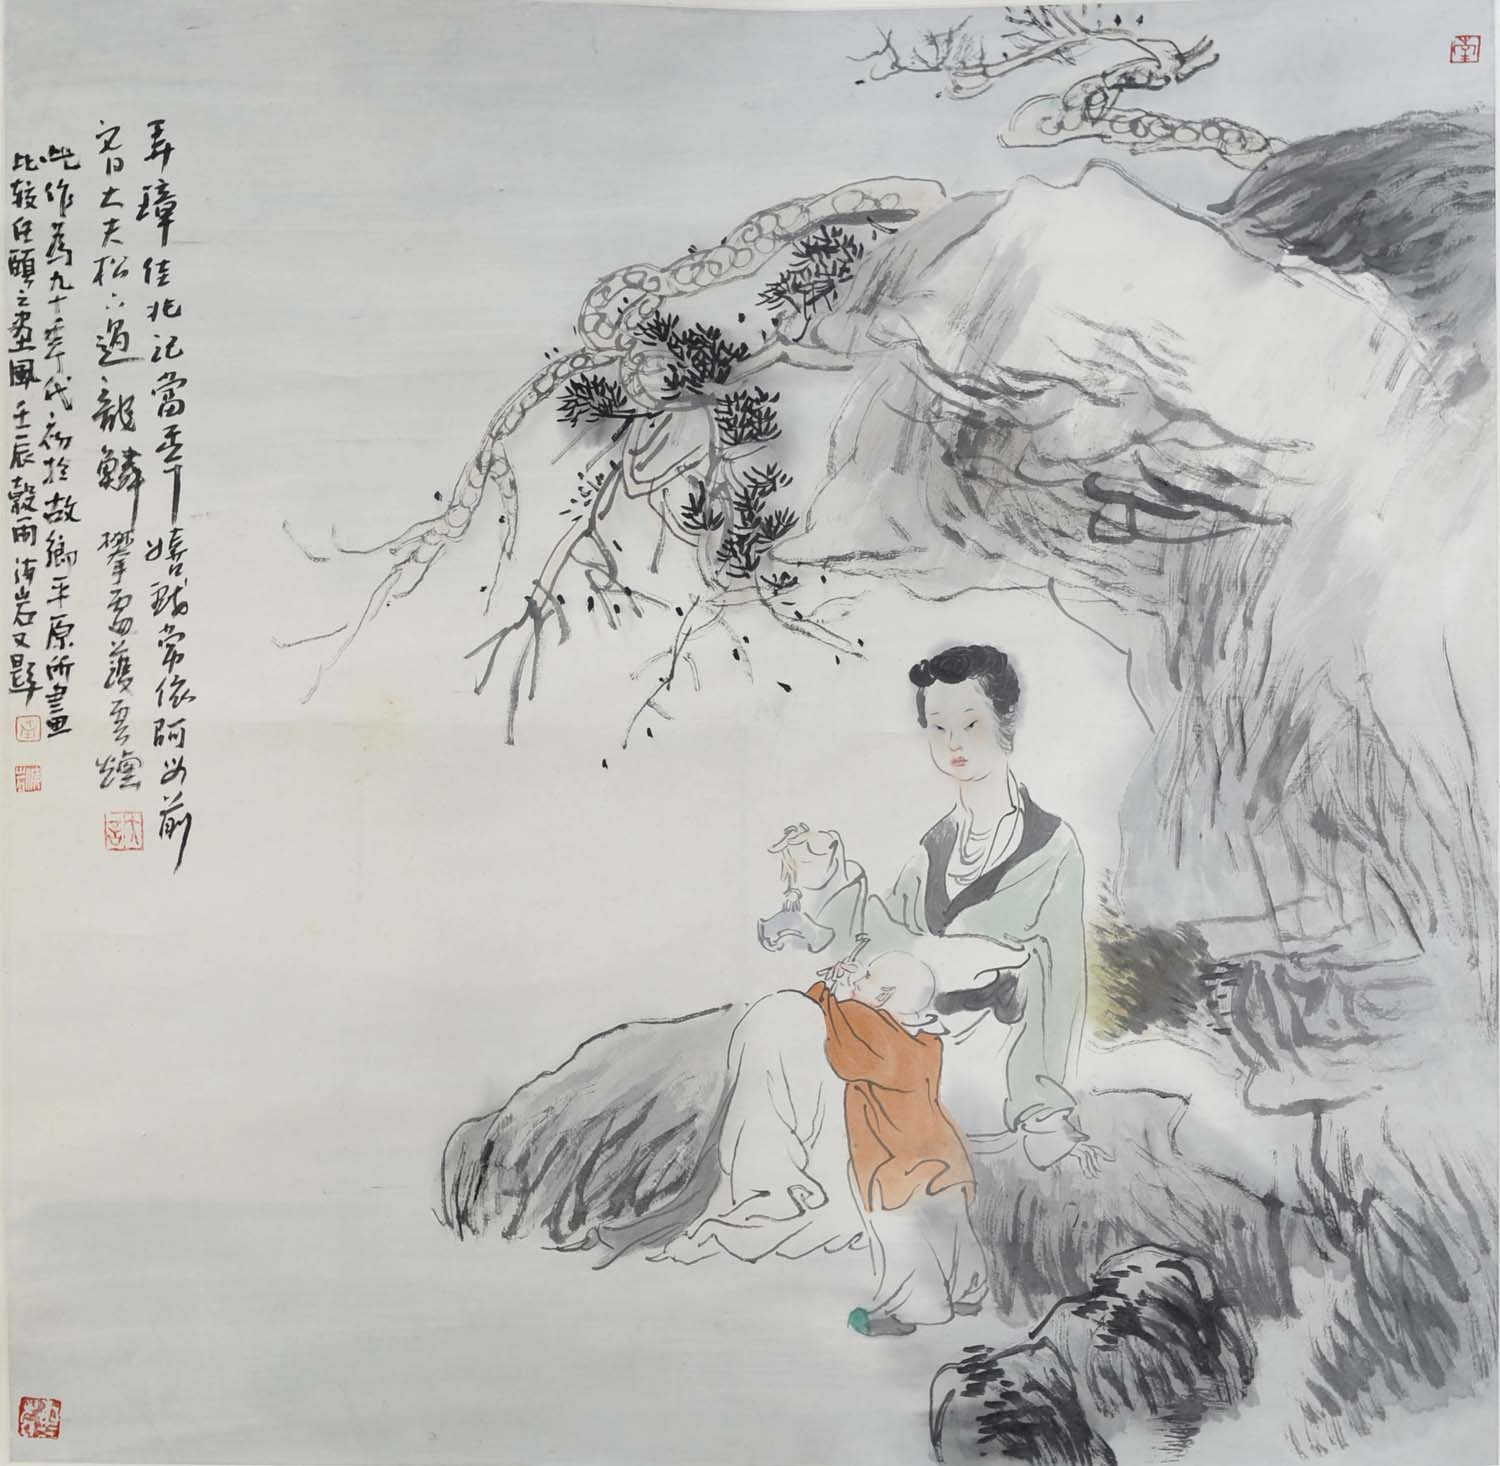 弄璋佳兆記當年嬉戲常依阿母前
日大夫松下過龍鱗攀處護雲煙
此作為九十年代初於故鄉平原所畫
比較任頤之畫風壬辰穀雨海岩又題